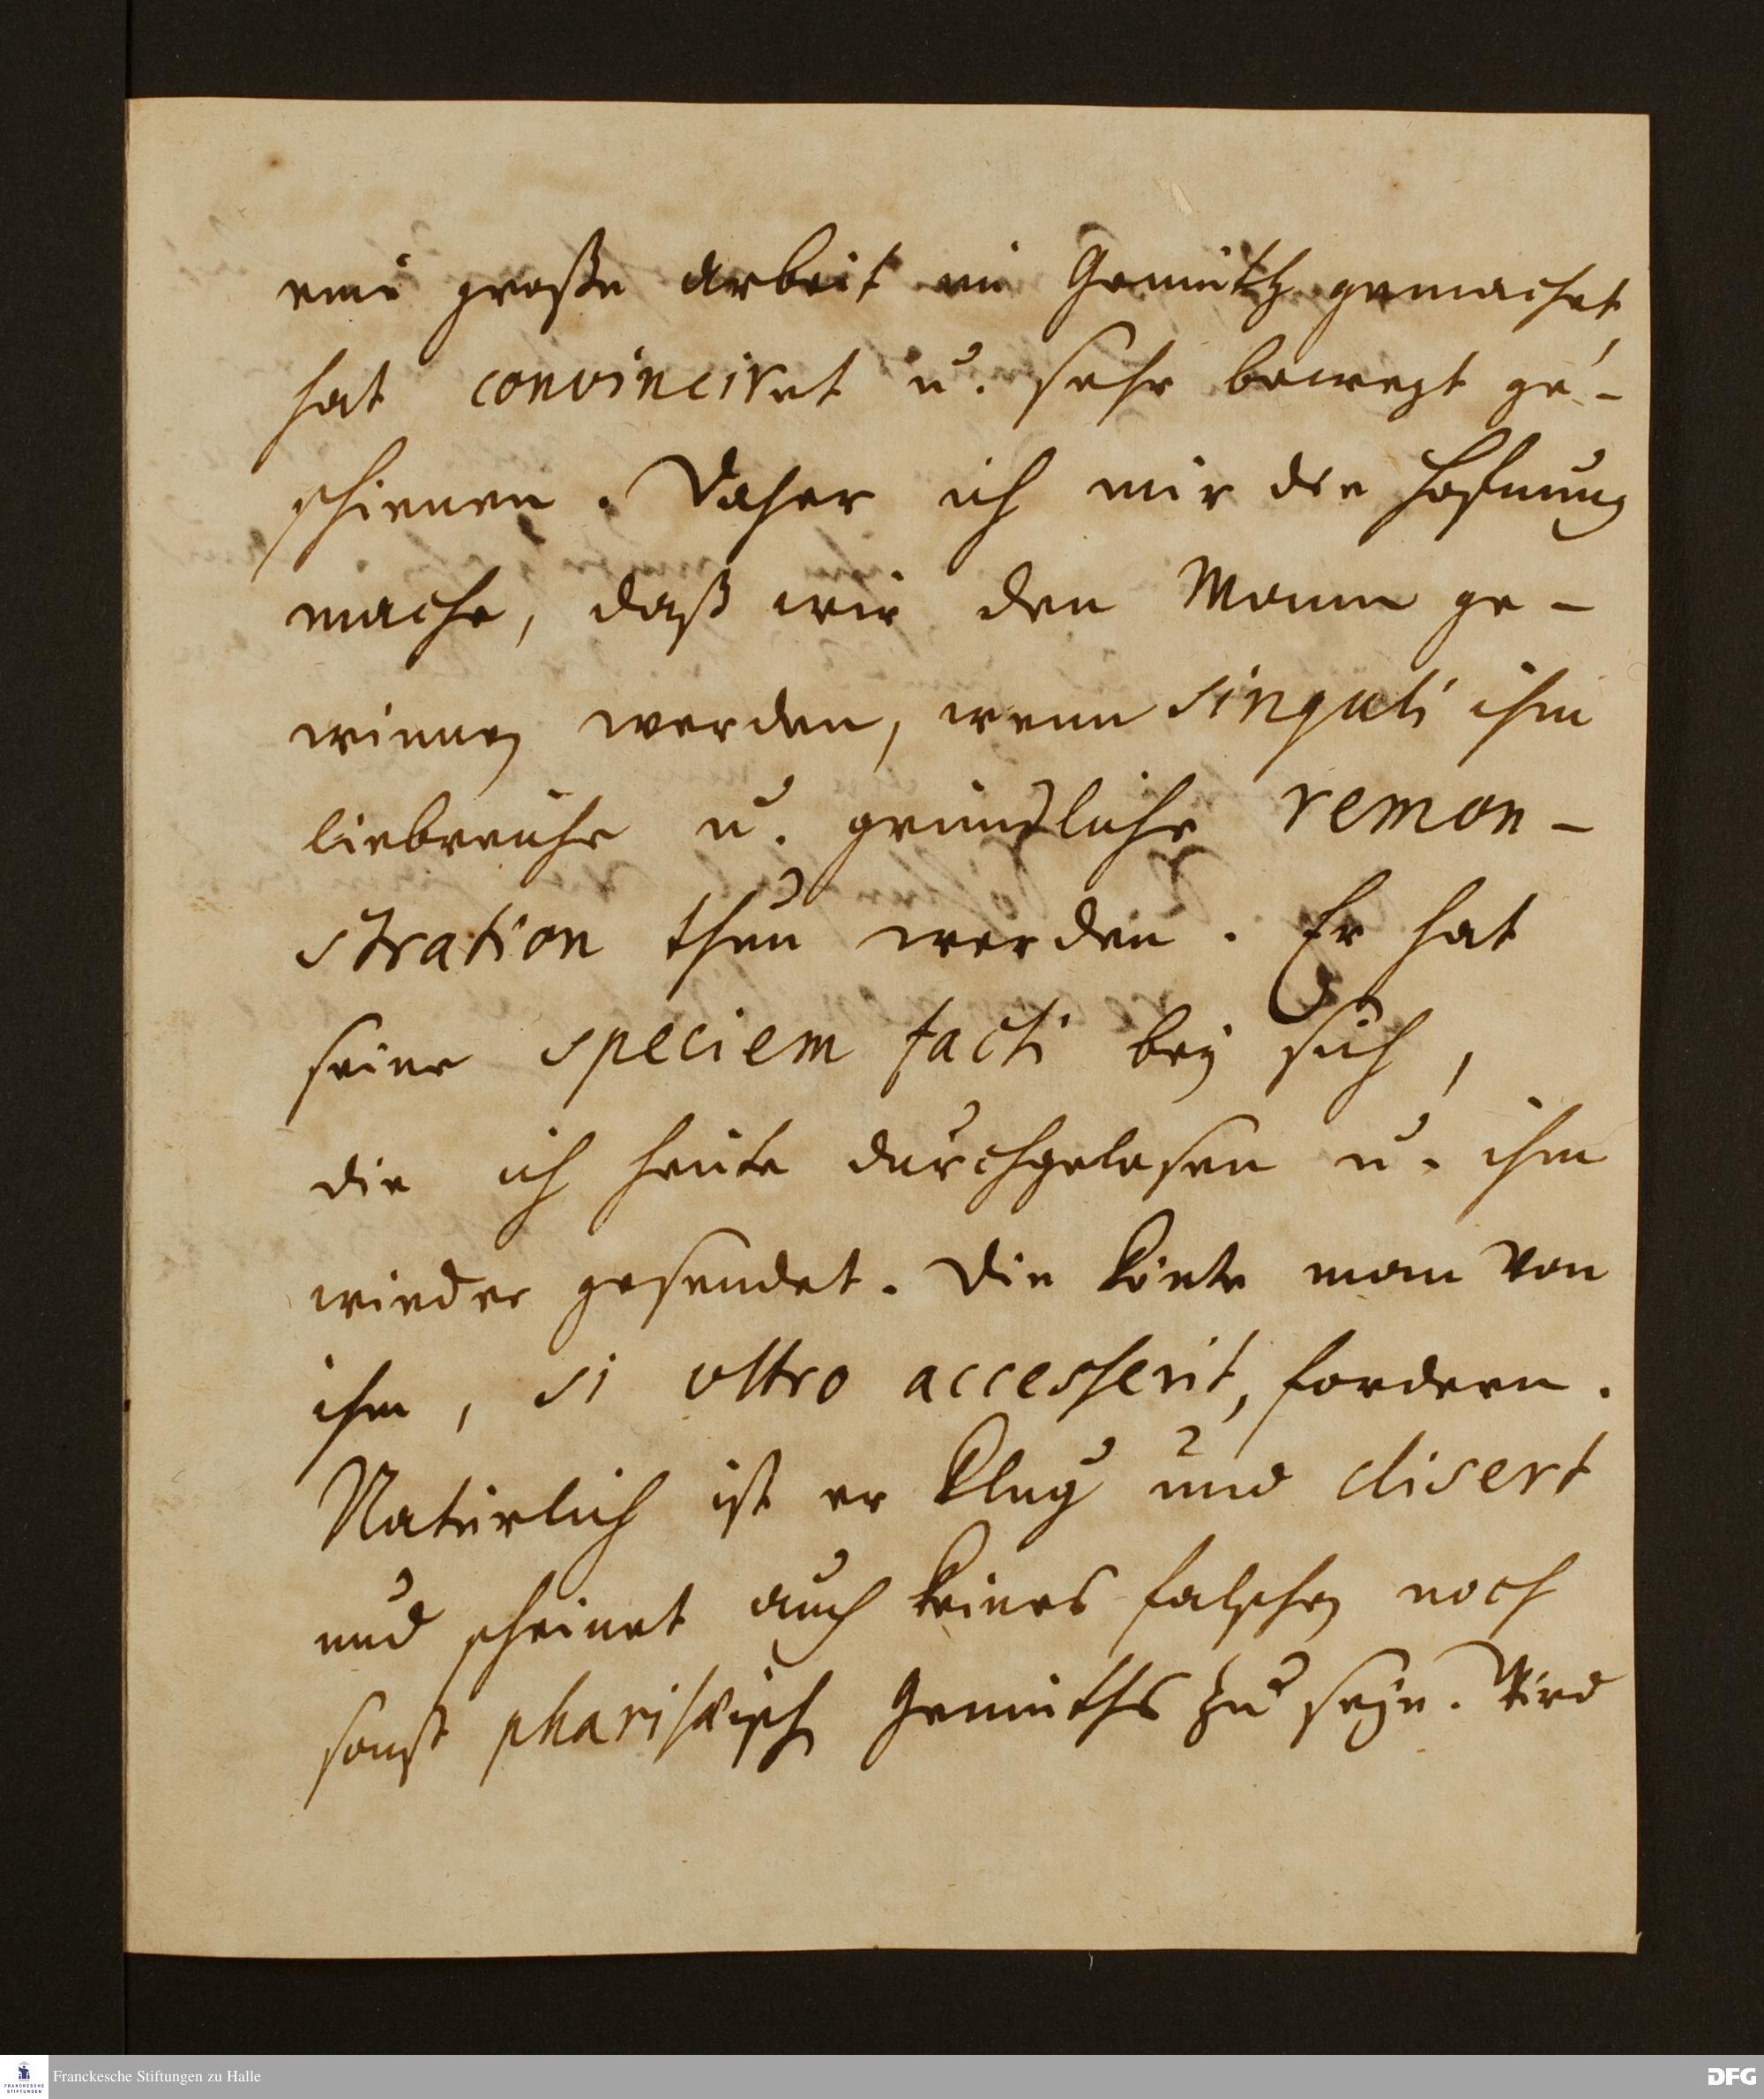 eine große Arbeit im Gemüth gemachet,
hat convinciret u. sehr bewegt ge-
schienen. Daher ich mir die Hofnung
mache, daß wir den Mann ge-
winnen werden, wenn singuli ihm
liebreiche u. gründliche remon-
stration thun werden. Er hat
seine speciem facti bey sich,
die ich heute durchgelesen u. ihm
wieder gesendet. Die könte man von
ihm, si ultro accesserit, fordern.
Natürlich ist er klug und disert
und scheinet auch keines falschen noch
sonst pharisäisch Gemüths zu seyn. Wird
FRANCKESCHE STIFTUNGEN
Franckesche Stiftungen zu Halle
DFG